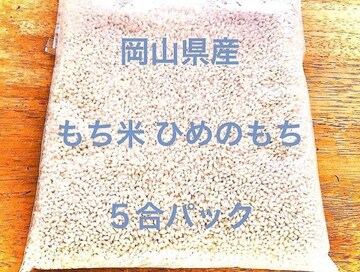 岡山県産
もち米 ひめのもち
５合パック